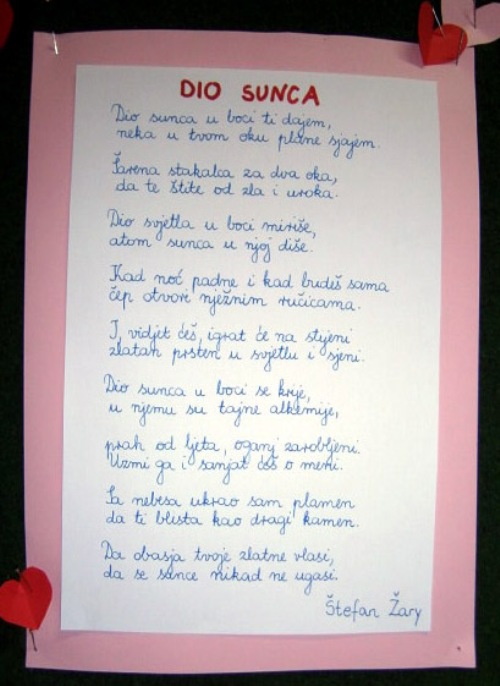 DIO SUNCA
Dio sunca u boci ti dajem,
neka u tvom oku plane sjajem.
Šarena stakalca za dva oka,
da te štite od zla i uroka.
Dio svjetla u boci miriše,
atom sunca u njoj diše.
Kad noć padne i kad budeš sama
čep otvori nježnim ručicama.
I vidjet ćeš, igrat će na stijeni
zlatan prsten u svjetlu i sjeni.
Dio sunca u boci se krije,
u njemu su tajne alkemije,
prah od ljeta, oganj zarobljeni.
Uzmi ga i sanjat ćeš o meni.
Sa nebesa ukrao sam plamen
da ti blista kao dragi kamen.
Da obasja tvoje zlatne vlasi,
da se sunce nikad ne ugasi.
Štefan Žary